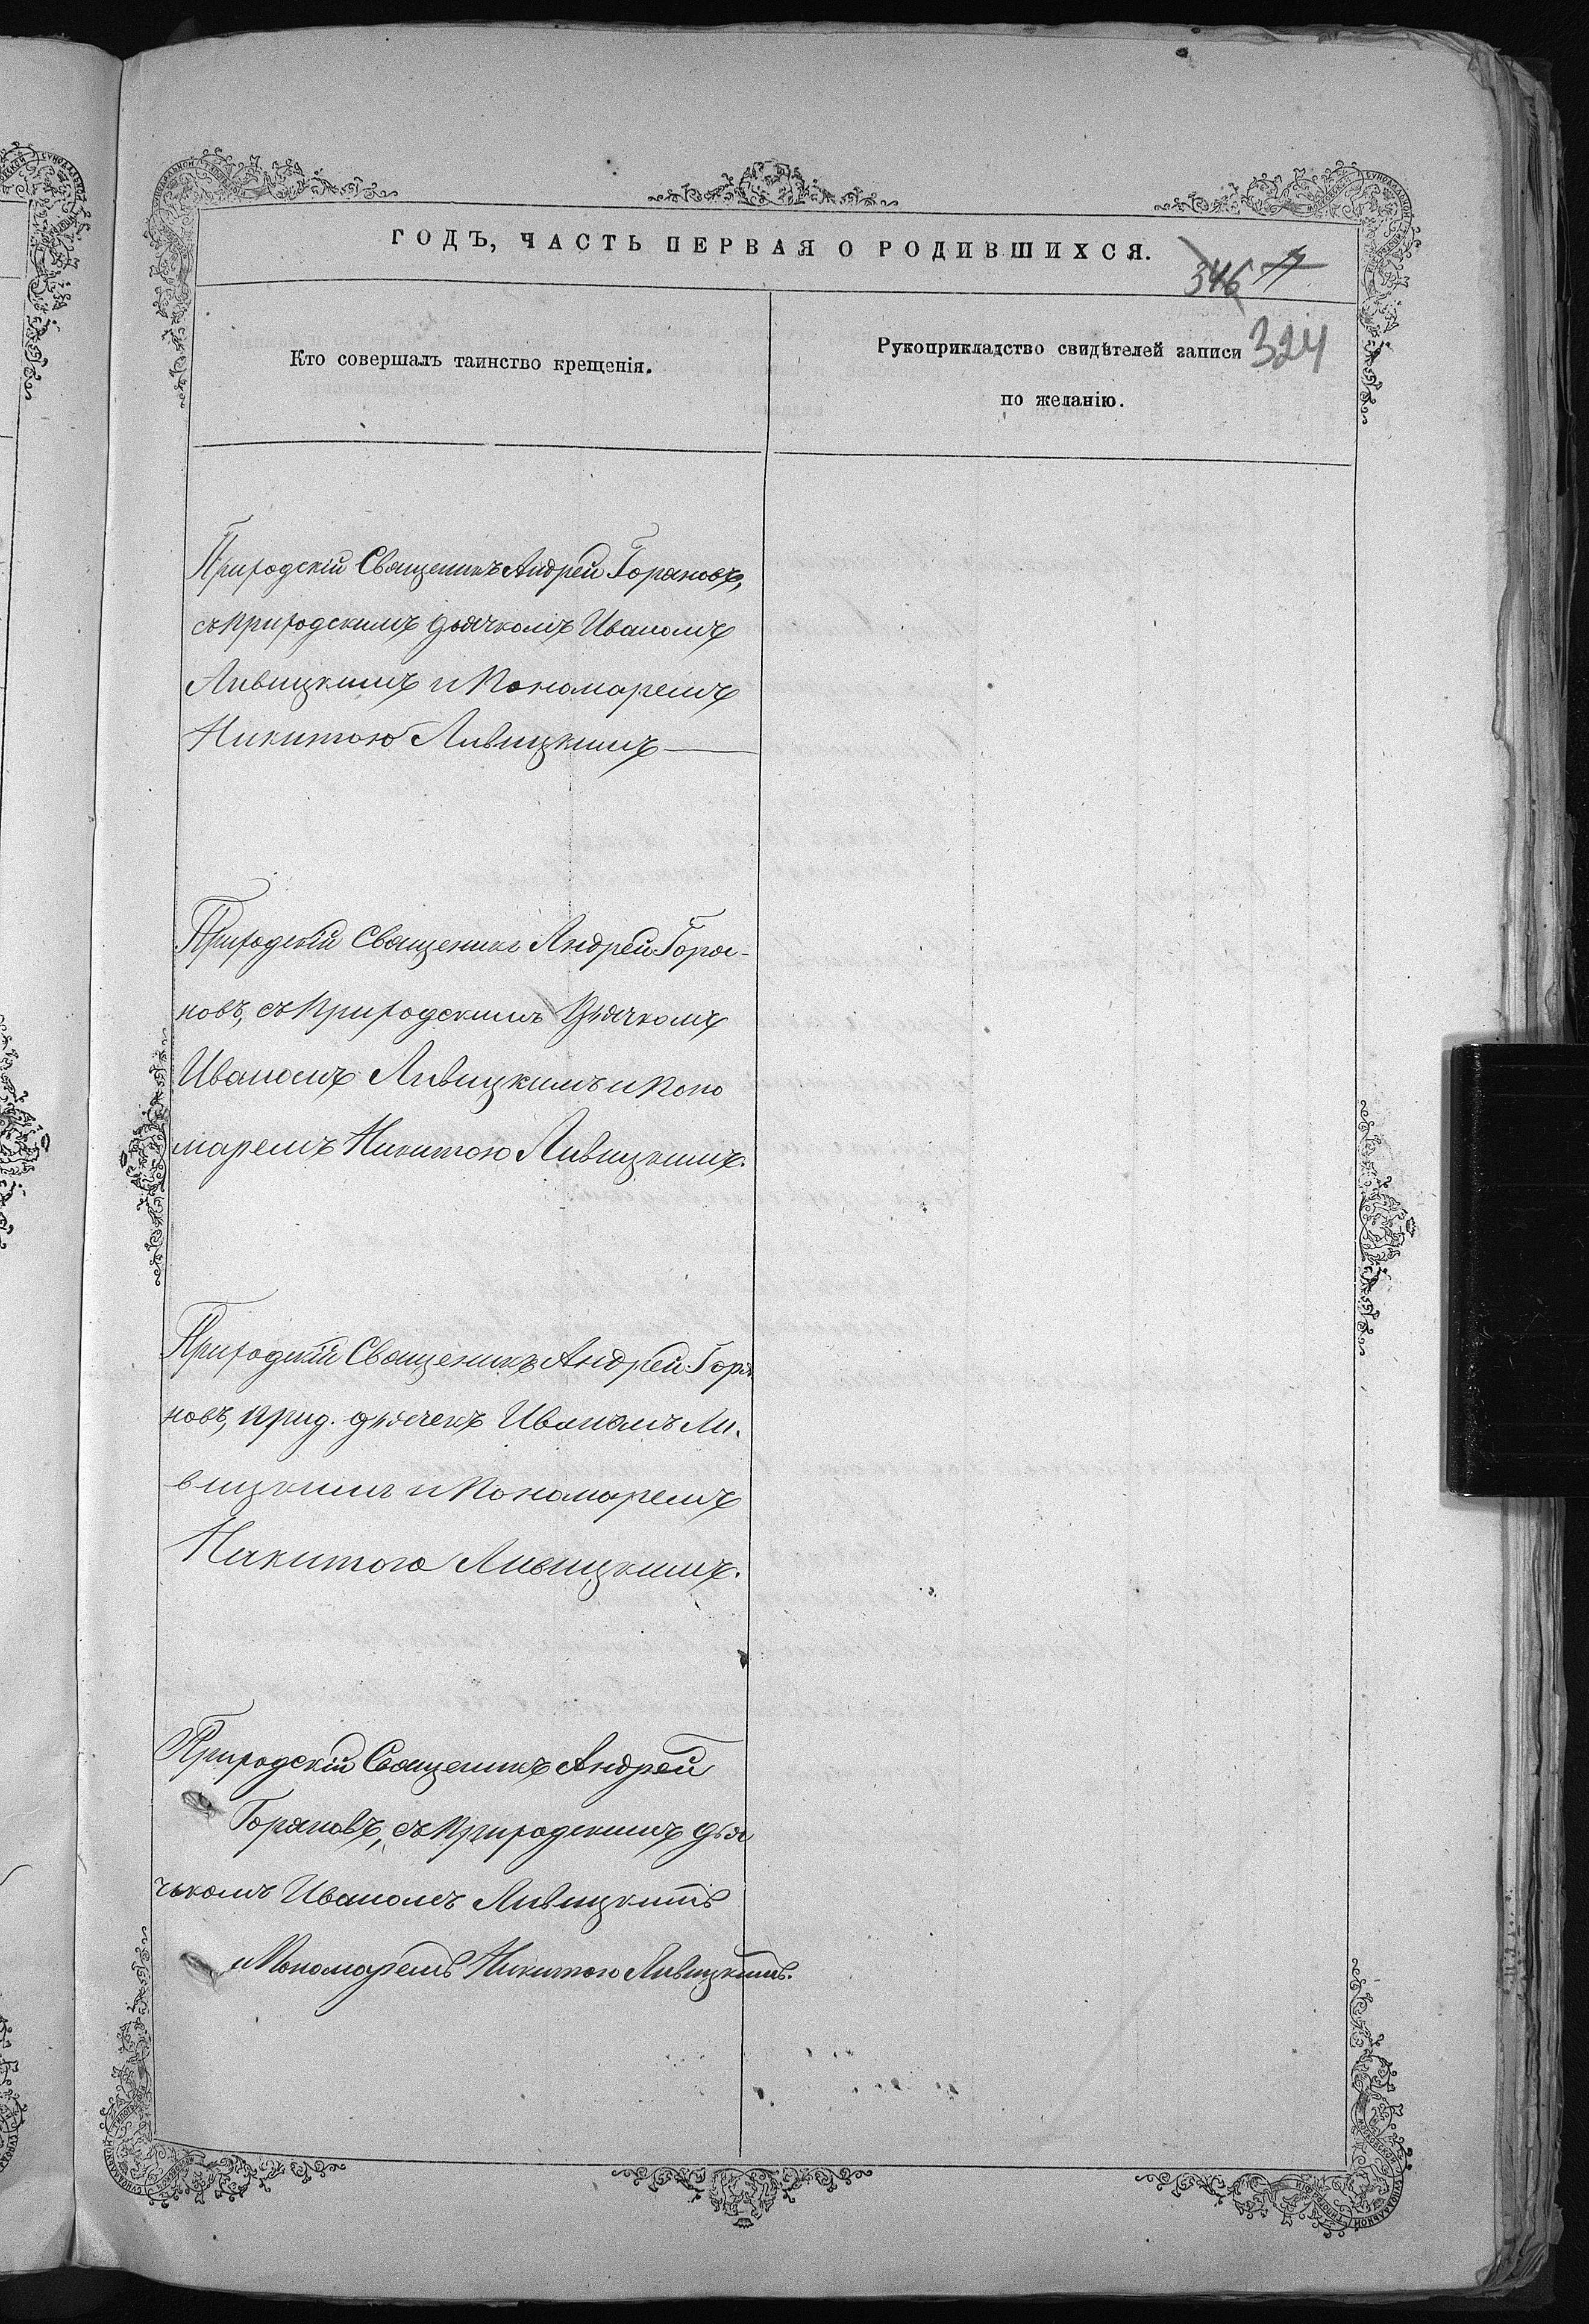 ГОДЪ, ЧАСТЬ ПЕРВАЯ О РОДИВШИХСЯ.
346
324
Кто совершалъ таинство крещенія.
Рукоприкладство свидѣтелей записи
по желанію.
Приходскій Священикъ Андрей Горановъ,
съ приходскимъ дьячкомъ Иваномъ
Ливицкимъ и Пономаремъ
Никитою Ливицкимъ
Приходскій Священикъ Андрей Гора-
новъ, съ приходскимъ Дьячкомъ
Иваномъ Ливицкимъ и Поно
маремъ Никитою Ливицкимъ.
Приходскій Священикъ Андрей Гора
новъ, прид. дьячекъ Иваномъ Ли-
вицкимъ и Пономаремъ
Никитою Ливицкимъ.
Приходскій Священикъ Андрей
Горановъ, съ приходскимъ дья
чькомъ Иваномъ Ливицкимъ
и Пономаремъ Никитою Ливицкимъ.